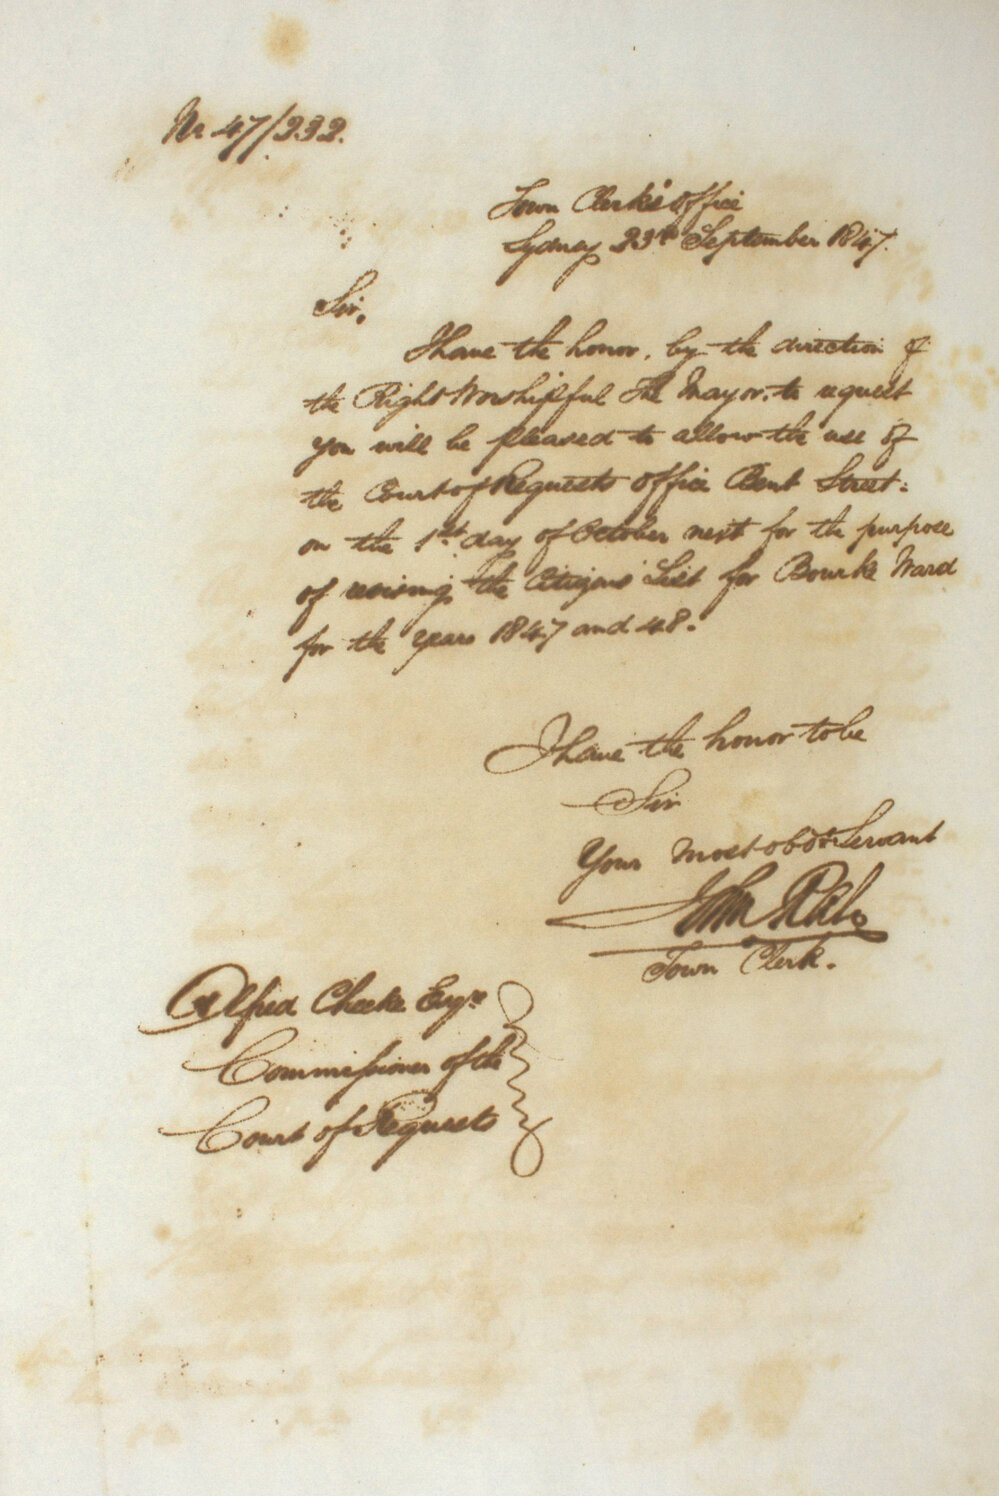 No 47/232.
Town Clerk's Office
Sydney 23rd September 1847.
Sir,
I have the honor, by the direction of
the Right Worshipful The Mayor, to request
you will be pleased to allow the use of
the Court of Requests Office Bent Street.
on the 1st day of October next for the purpose
of revising the Citizens' List for Bourke Ward
for the years 1847 and 48.
I have the honor to be
Sir
Your most obdt Servant
John
Town Clerk.
Alfred Cheeke Esqre
Commissioner of the
Court of Requests